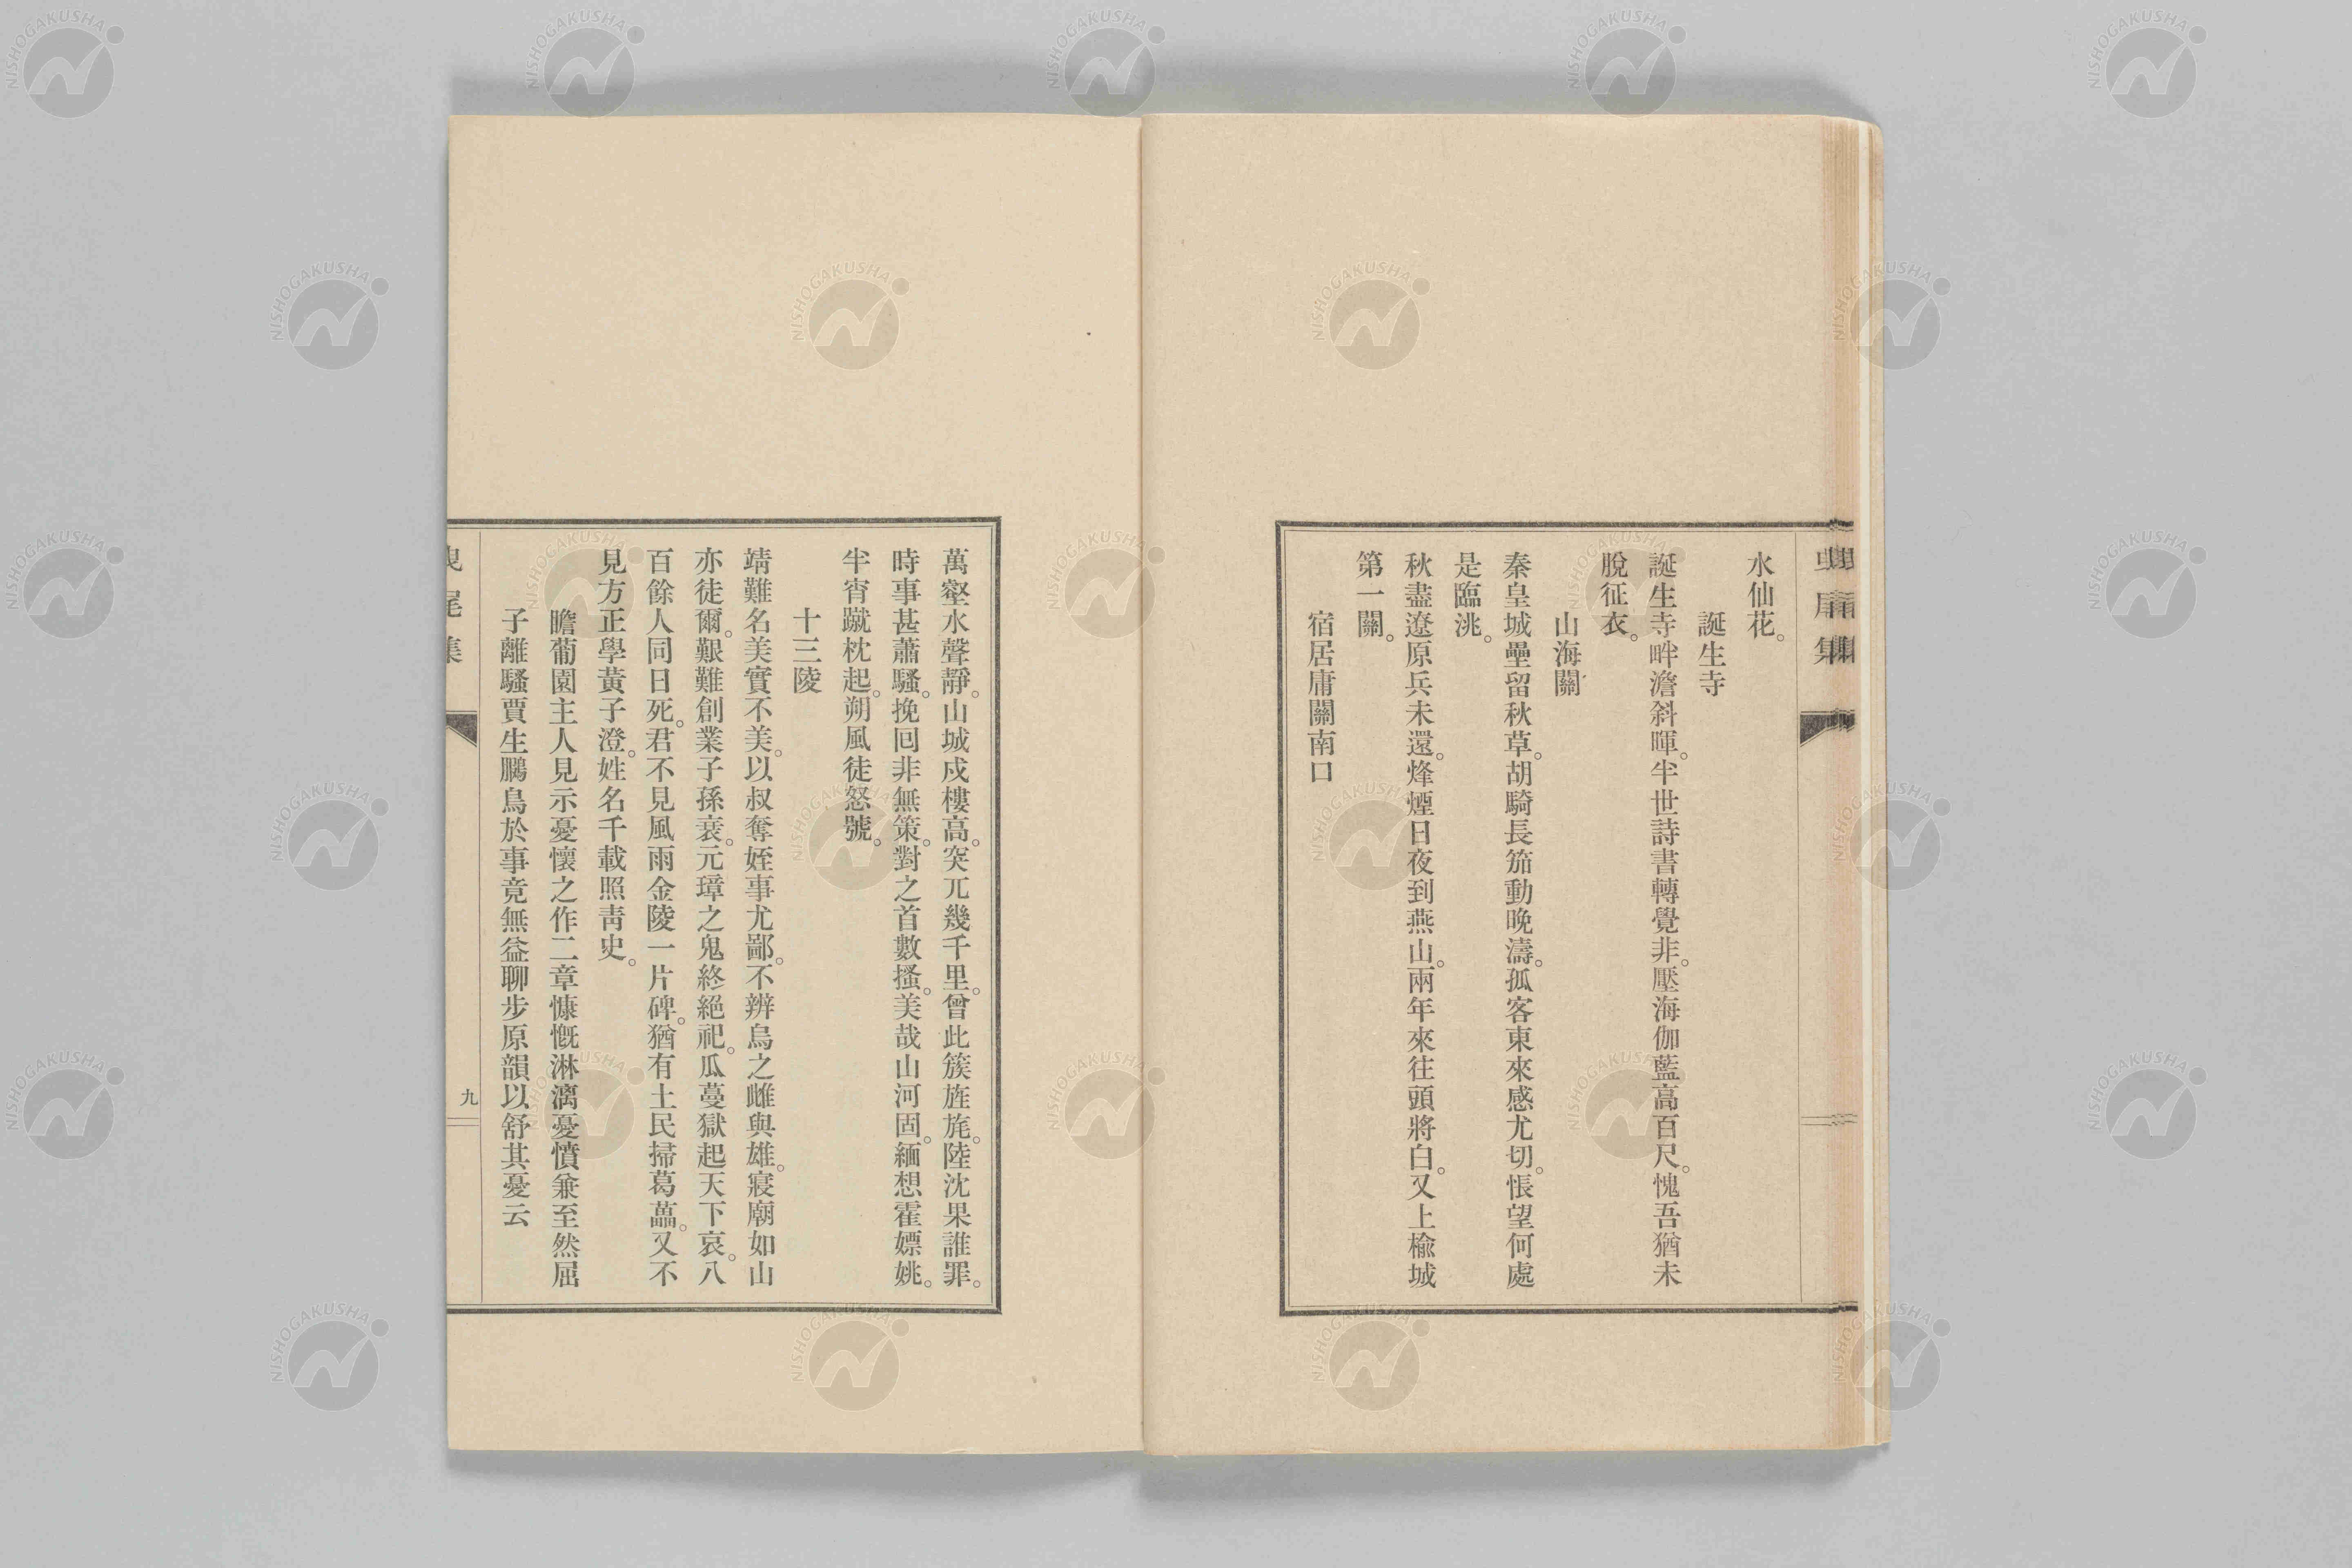 水仙花。
誕生寺
誕生寺畔澹斜暉。半世詩書轉覺非。壓海伽藍高百尺。愧吾猶未
脫征衣。
山海關
秦皇城壘留秋草。胡騎長笳動晚濤。孤客東來感尤切。悵望何處
是臨洮。
秋盡遼原兵未還。烽煙日夜到燕山。兩年來往頭將白。又上楡城
第一關。
宿居庸關南口
萬壑水聲靜。山城戍樓高。突兀幾千里。曾此簇旌旄。陸沈果誰罪。
時事甚蕭騷。挽回非無策。對之首數搔。美哉山河固。緬想霍嫖姚。
半宵蹴枕起。朔風徒怒號。
十三陵
靖難名美實不美。以叔奪姪事尤鄙。不辨烏之雌與雄。寢廟如山
亦徒爾。艱難創業子孫衰。元璋之鬼終絕祀。瓜蔓獄起天下哀。八
百餘人同日死。君不見風雨金陵一片碑。猶有土民掃葛藟。又不
見方正學黃子澄。姓名千載照靑史。
瞻葡園主人見示憂懷之作二章慷慨淋漓憂憤兼至然屈
子離騷賈生鵩鳥於事竟無益聊步原韻以舒其憂云
九
NISHOGAKUSHA